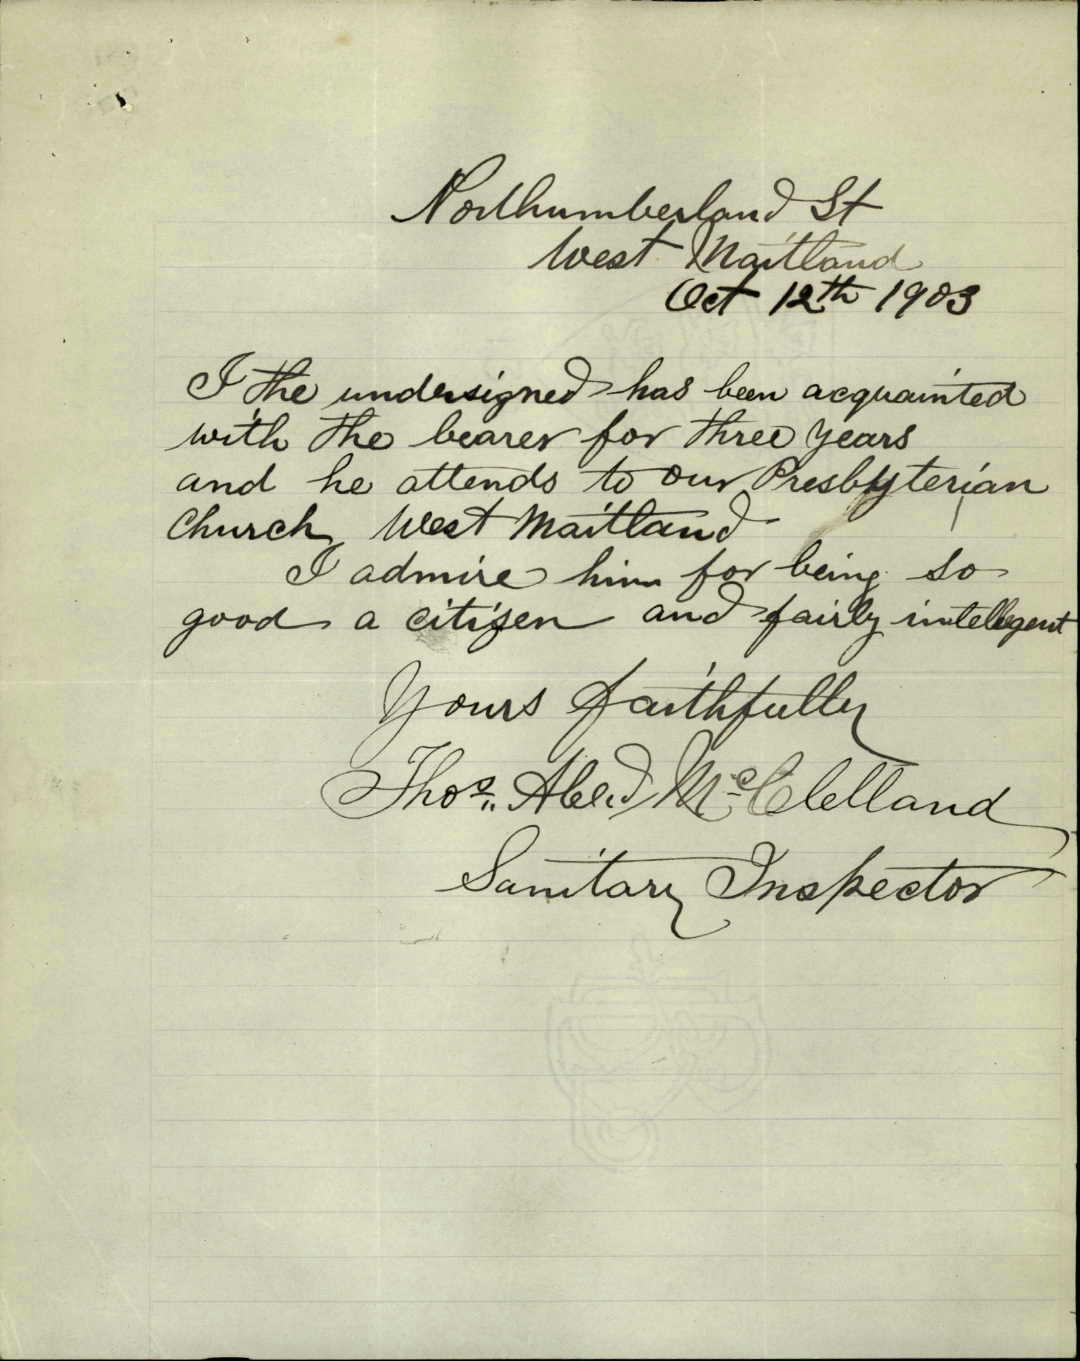 Northumberland St
West Maitland
Oct 12th 1903
I the undersigned has been acquainted
with the bearer for three years
and he attends to our Presbyterian
Church, West Maitland
I admire him for being so
good a citizen and fairly intellegent
Yours faithfully
Thos. Alexd McClelland
Sanitary Inspector